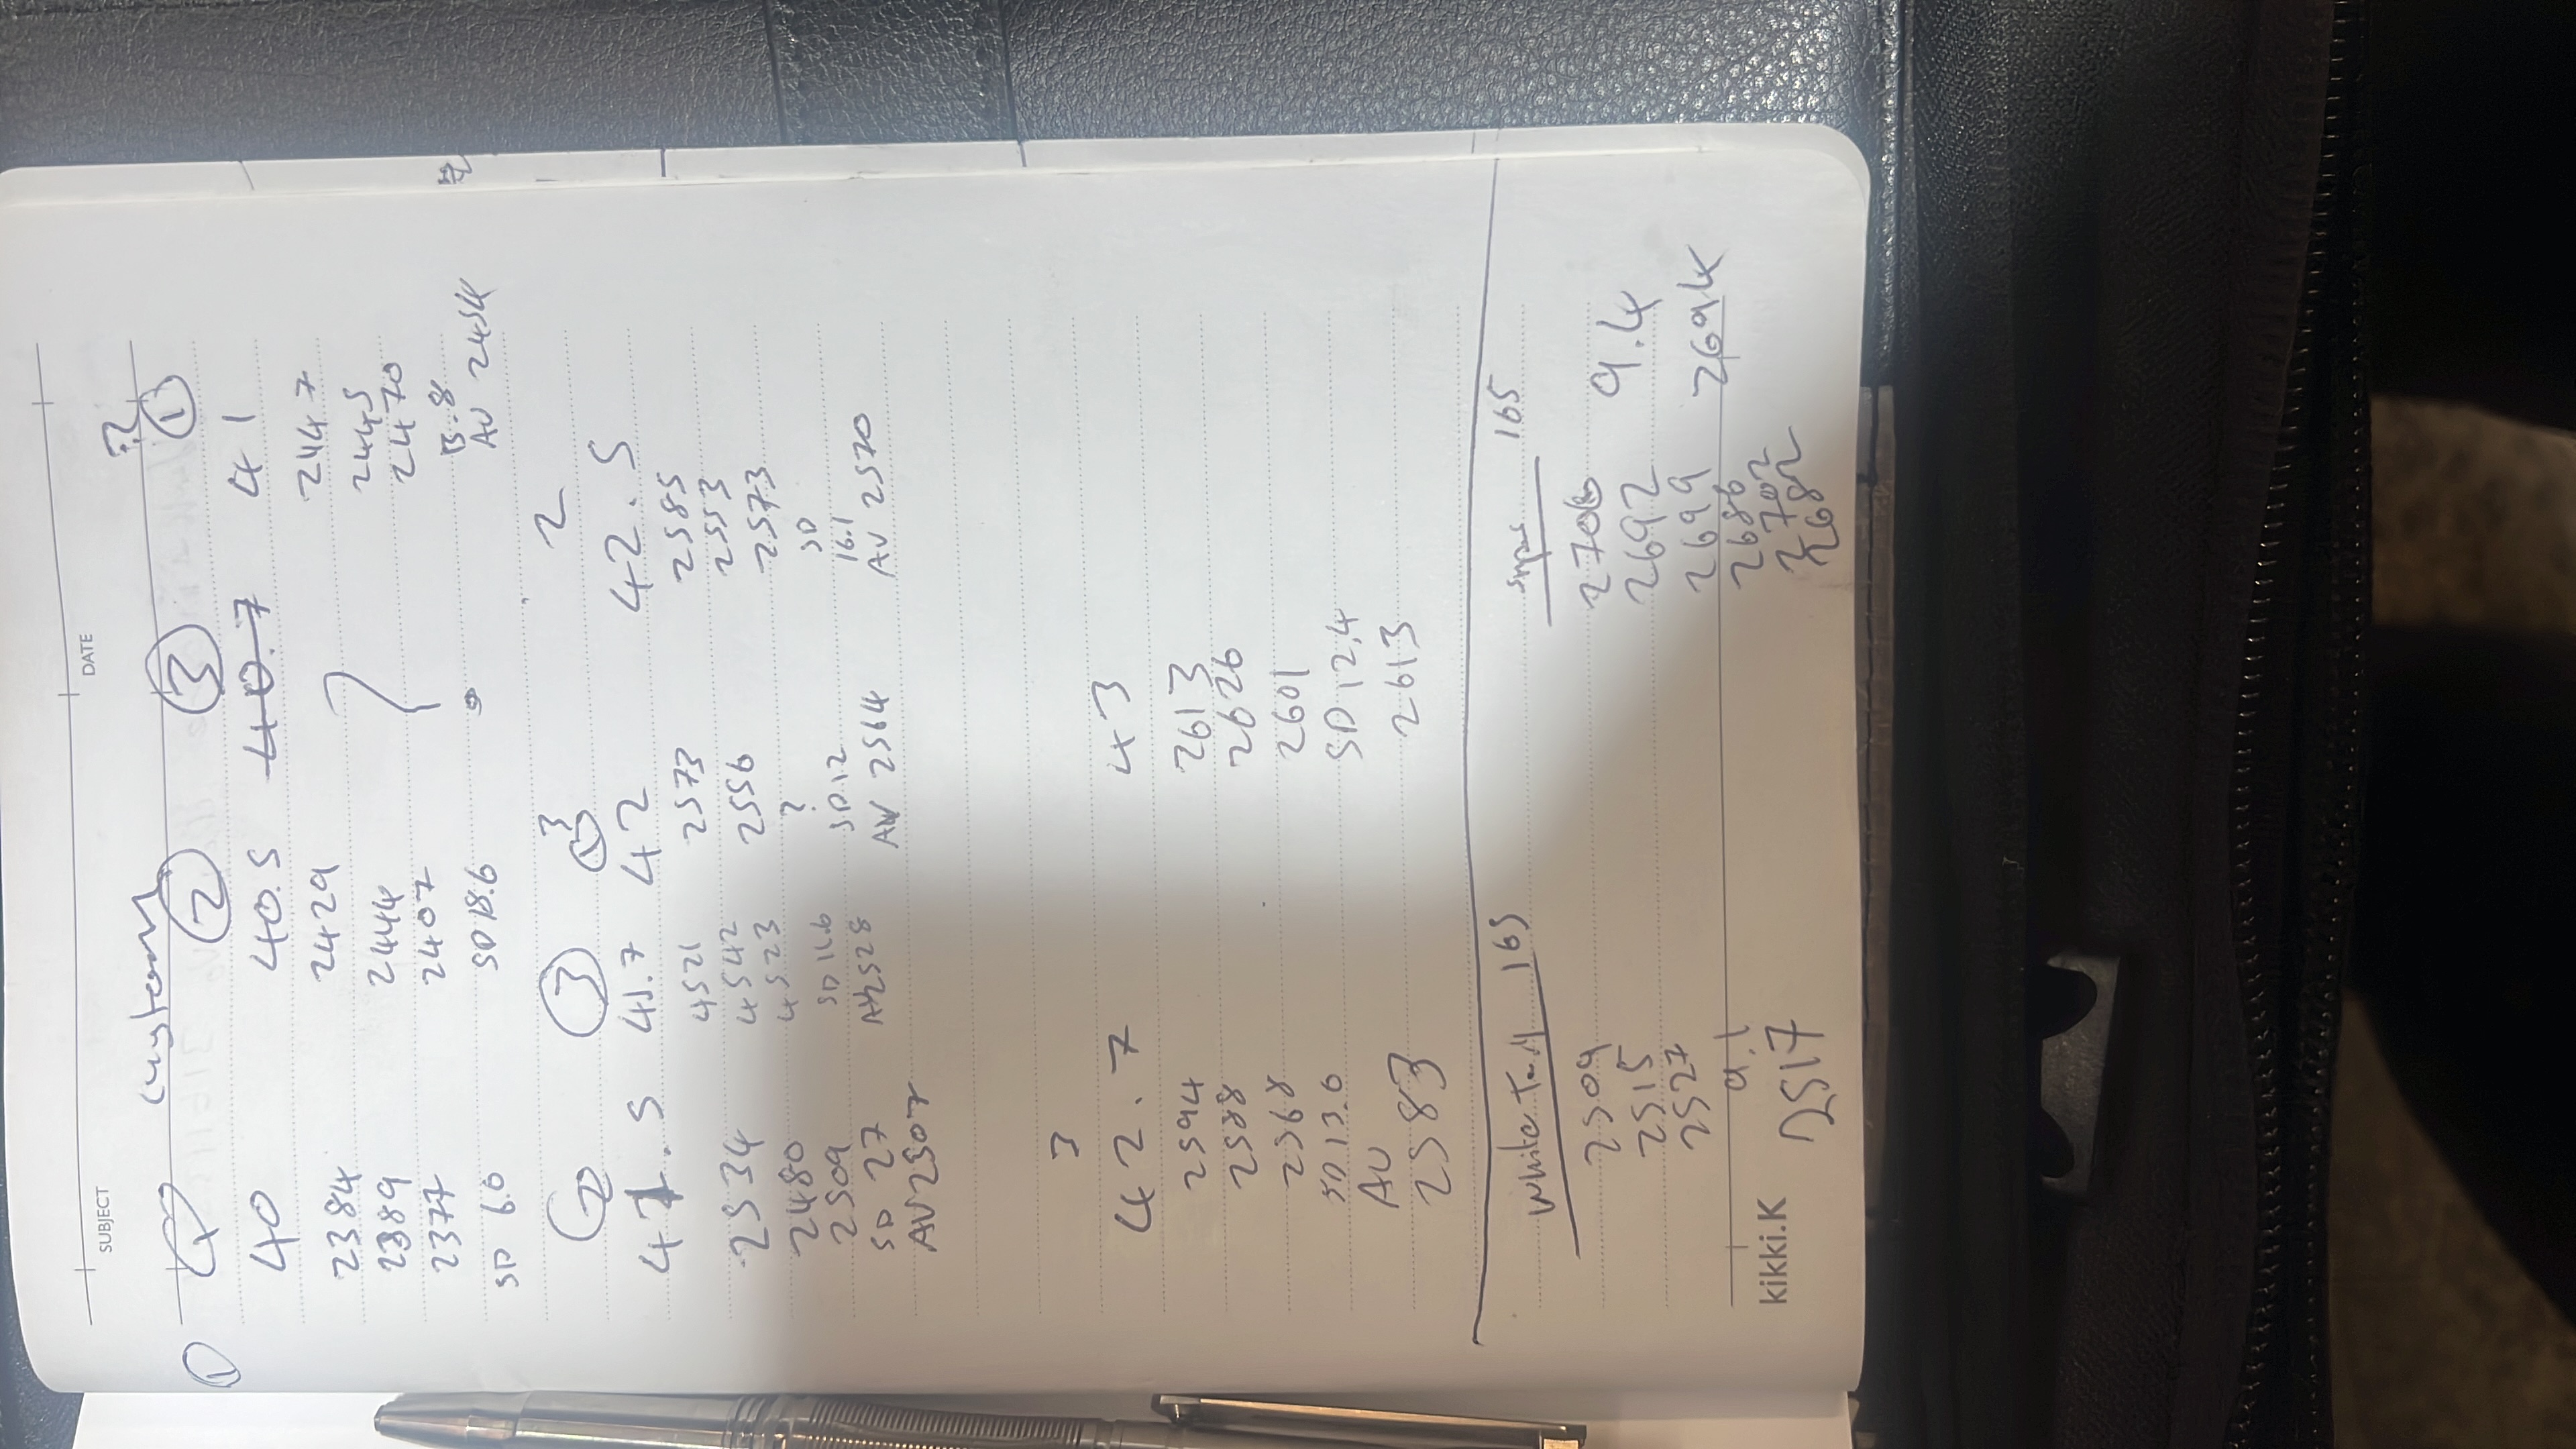 SUBJECT DATE
custom
① ② ③ ①
40 40.5 40.7 41
2384 2429 ? 2447
2389 2444 2445
2377 2407 2470
SD 6.0 SD 18.6 13.8
AV 2454
② ③ 3 2
41.5 41.7 42 42.5
2534 4521 2573 2585
2480 4542 2556 2553
2509 4523 ? 2573
SD 27 SD 11.6 SD.12 SD 16.1
AV 2507 AV 2528 AV 2564 AV 2570
3
42.7 43
2594 2613
2588 2626
2568 2601
SD 13.6 SD 12.4
AV 2613
2583
White Tail 165 165
2509 2706 9.4
2515 2692
2527 2699 2694
9.1 2686
2517 2702
2682
kikki.K